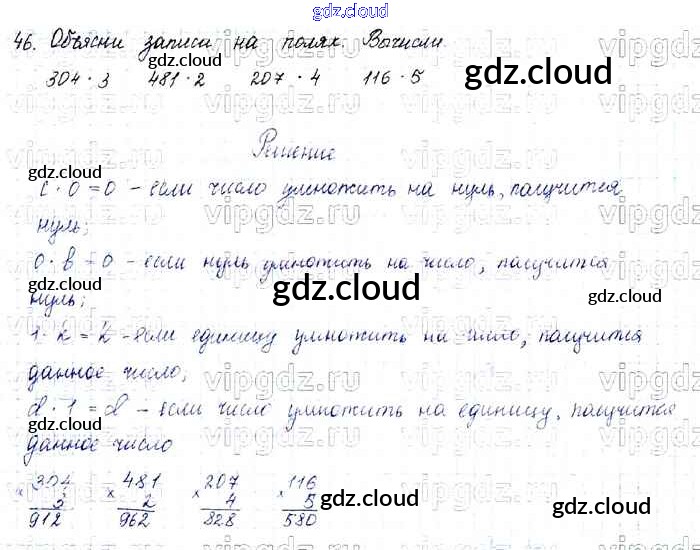 gdz.cloud
46. Объясни записи на полях. Вычисли
304 · 3 481 · 2 207 · 4 116 · 5
gdz.cloud
Решение
gdz.cloud
c · 0 = 0 – если число умножить на нуль, получится
нуль;
0 · b = 0 – если нуль умножить на число, получится
нуль;
gdz.cloud
gdz.cloud
gdz.cloud
1 · k = k – если единицу умножить на число, получится
данное число;
gdz.cloud
d · 1 = d – если число умножить на единицу, получится
данное число
gdz.cloud
gdz.cloud
× 304 × 481 × 207 × 116
3 2 4 5
912 962 828 580
gdz.cloud